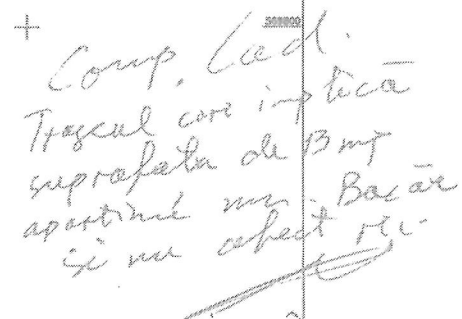 Comp. Cad.
Troscul care implică
suprafata de 13 mp
apartine mun. Bacău
și nu afect